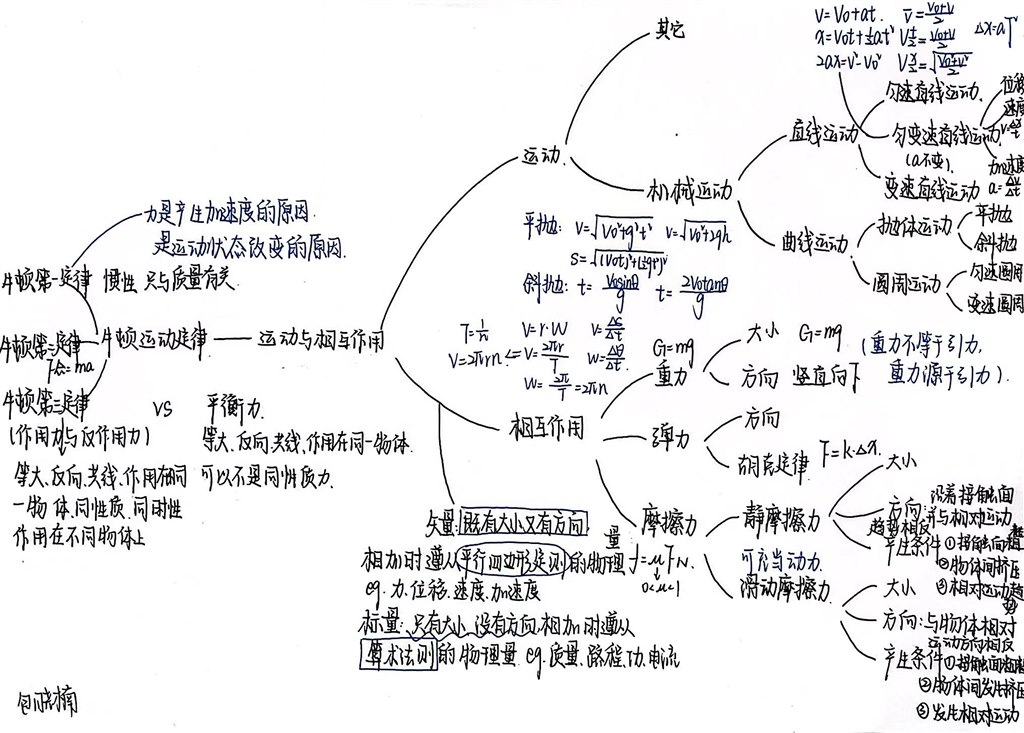 其它
V=V₀+at. V̄=(V₀+V)/2
x=V₀t+½at² V t/2=(V₀+V)/2 Δx=aT²
2ax=V²-V₀² V x/2=√((V₀²+V²)/2)
运动.
机械运动
直线运动
匀速直线运动.
匀变速直线运动
(a不变).
变速直线运动
位移
速度
V=Δx/Δt
加速度
a=Δv/Δt
曲线运动
抛体运动
平抛
斜抛
圆周运动
匀速圆周
变速圆周
平抛: V=√(V₀²+g²t²) V=√(V₀²+2gh)
S=√((V₀t)²+(½gt²)²)
斜抛: t=V₀sinθ/g t=2V₀tanθ/g
T=1/n V=r·W V=ΔS/Δt
V=2πrn <= V=2πr/T W=Δθ/Δt
W=2π/T=2πn
力是产生加速度的原因.
是运动状态改变的原因.
牛顿第一定律 惯性 只与质量有关
牛顿第二定律
F合=ma
牛顿运动定律
运动与相互作用
牛顿第三定律 VS 平衡力.
(作用力与反作用力)
等大、反向、共线、作用在同一物体.
可以不是同性质力.
等大、反向、共线、作用在
一物体、同性质、同时性
作用在不同物体上
相互作用
G=mg
重力
大小 G=mg
方向 竖直向下
(重力不等于引力,
重力源于引力).
弹力
方向
胡克定律 F=k·Δx.
摩擦力
f=μFN.
0<μ<1
静摩擦力
可充当动力.
大小
方向:沿着接触面
并与相对运动
趋势相反
产生条件①接触面粗糙
②物体间挤压
③相对运动趋势
滑动摩擦力
大小
方向:与物体相对
运动方向相反
产生条件①接触面粗糙
②物体间发生挤压
③发生相对运动
矢量:既有大小又有方向
相加时遵从平行四边形定则的物理量
eg.力、位移、速度、加速度
标量:只有大小,没有方向,相加时遵从
算术法则的物理量 eg.质量、路程、功、电流